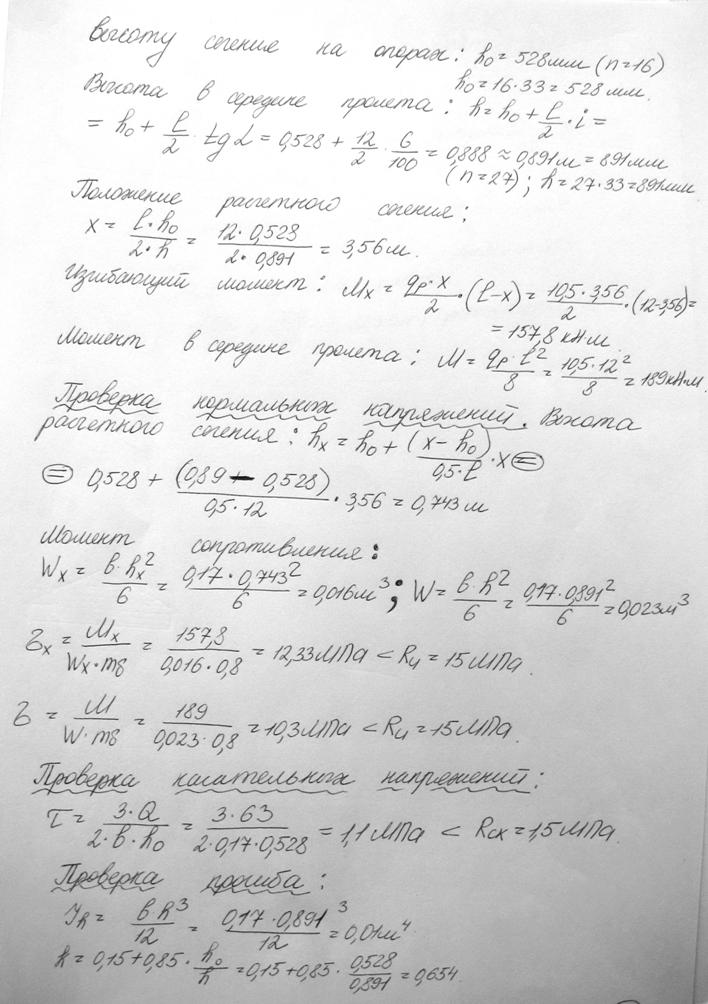 высоту сечения на опорах: h₀ = 528мм (n=16)
h₀ = 16·33 = 528 мм.
Высота в середине пролета: h = h₀ + l/2 · i =
= h₀ + l/2 · tg L = 0,528 + 12/2 · 6/100 = 0,888 ≈ 0,891м = 891мм
(n=27); h = 27·33 = 891мм
Положение расчетного сечения:
x = l·h₀/2·h = 12·0,528/2·0,891 = 3,56м.
Изгибающий момент: Mx = qр·x/2 · (l-x) = 10,5·3,56/2 · (12-3,56) =
= 157,8 кН·м.
Момент в середине пролета: M = qр·l²/8 = 10,5·12²/8 = 189кН·м.
Проверка нормальных напряжений. Высота
расчетного сечения: hx = h₀ + (x-h₀)/0,5·l · x =
= 0,528 + (0,89 - 0,528)/0,5·12 · 3,56 = 0,743 м
Момент сопротивления:
Wx = в·hx²/6 = 0,17·0,743²/6 = 0,016м³; W = в·h²/6 = 0,17·0,891²/6 = 0,023м³
σx = Mx/Wx·mб = 157,8/0,016·0,8 = 12,33МПа < Rи = 15МПа.
σ = M/W·mб = 189/0,023·0,8 = 10,3МПа < Rи = 15МПа.
Проверка касательных напряжений:
τ = 3·Q/2·в·h₀ = 3·63/2·0,17·0,528 = 1,1МПа < Rск = 1,5МПа.
Проверка прогиба:
Jh = в·h³/12 = 0,17·0,891³/12 = 0,01м⁴.
k = 0,15+0,85 · h₀/h = 0,15+0,85 · 0,528/0,891 = 0,654.